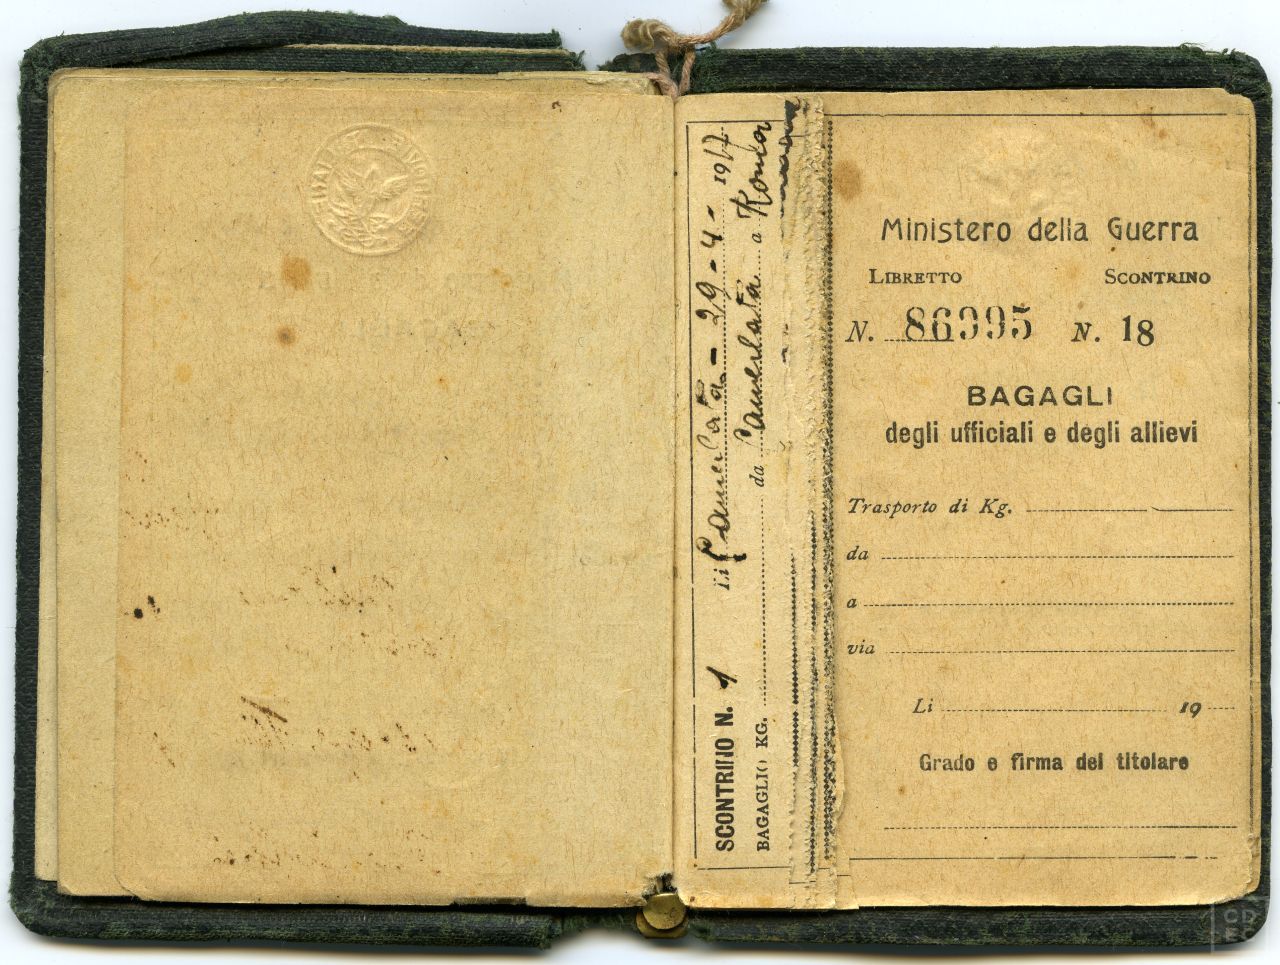 SCONTRINO N. 1 Li Camerlata - 29 - 4 - 1917
BAGAGLIO KG. da Camerlata a Roma
Ministero della Guerra
LIBRETTO SCONTRINO
N. 86995 N. 18
BAGAGLI
degli ufficiali e degli allievi
Trasporto di Kg.
da
a
via
Li 19
Grado e firma del titolare
CD
EC